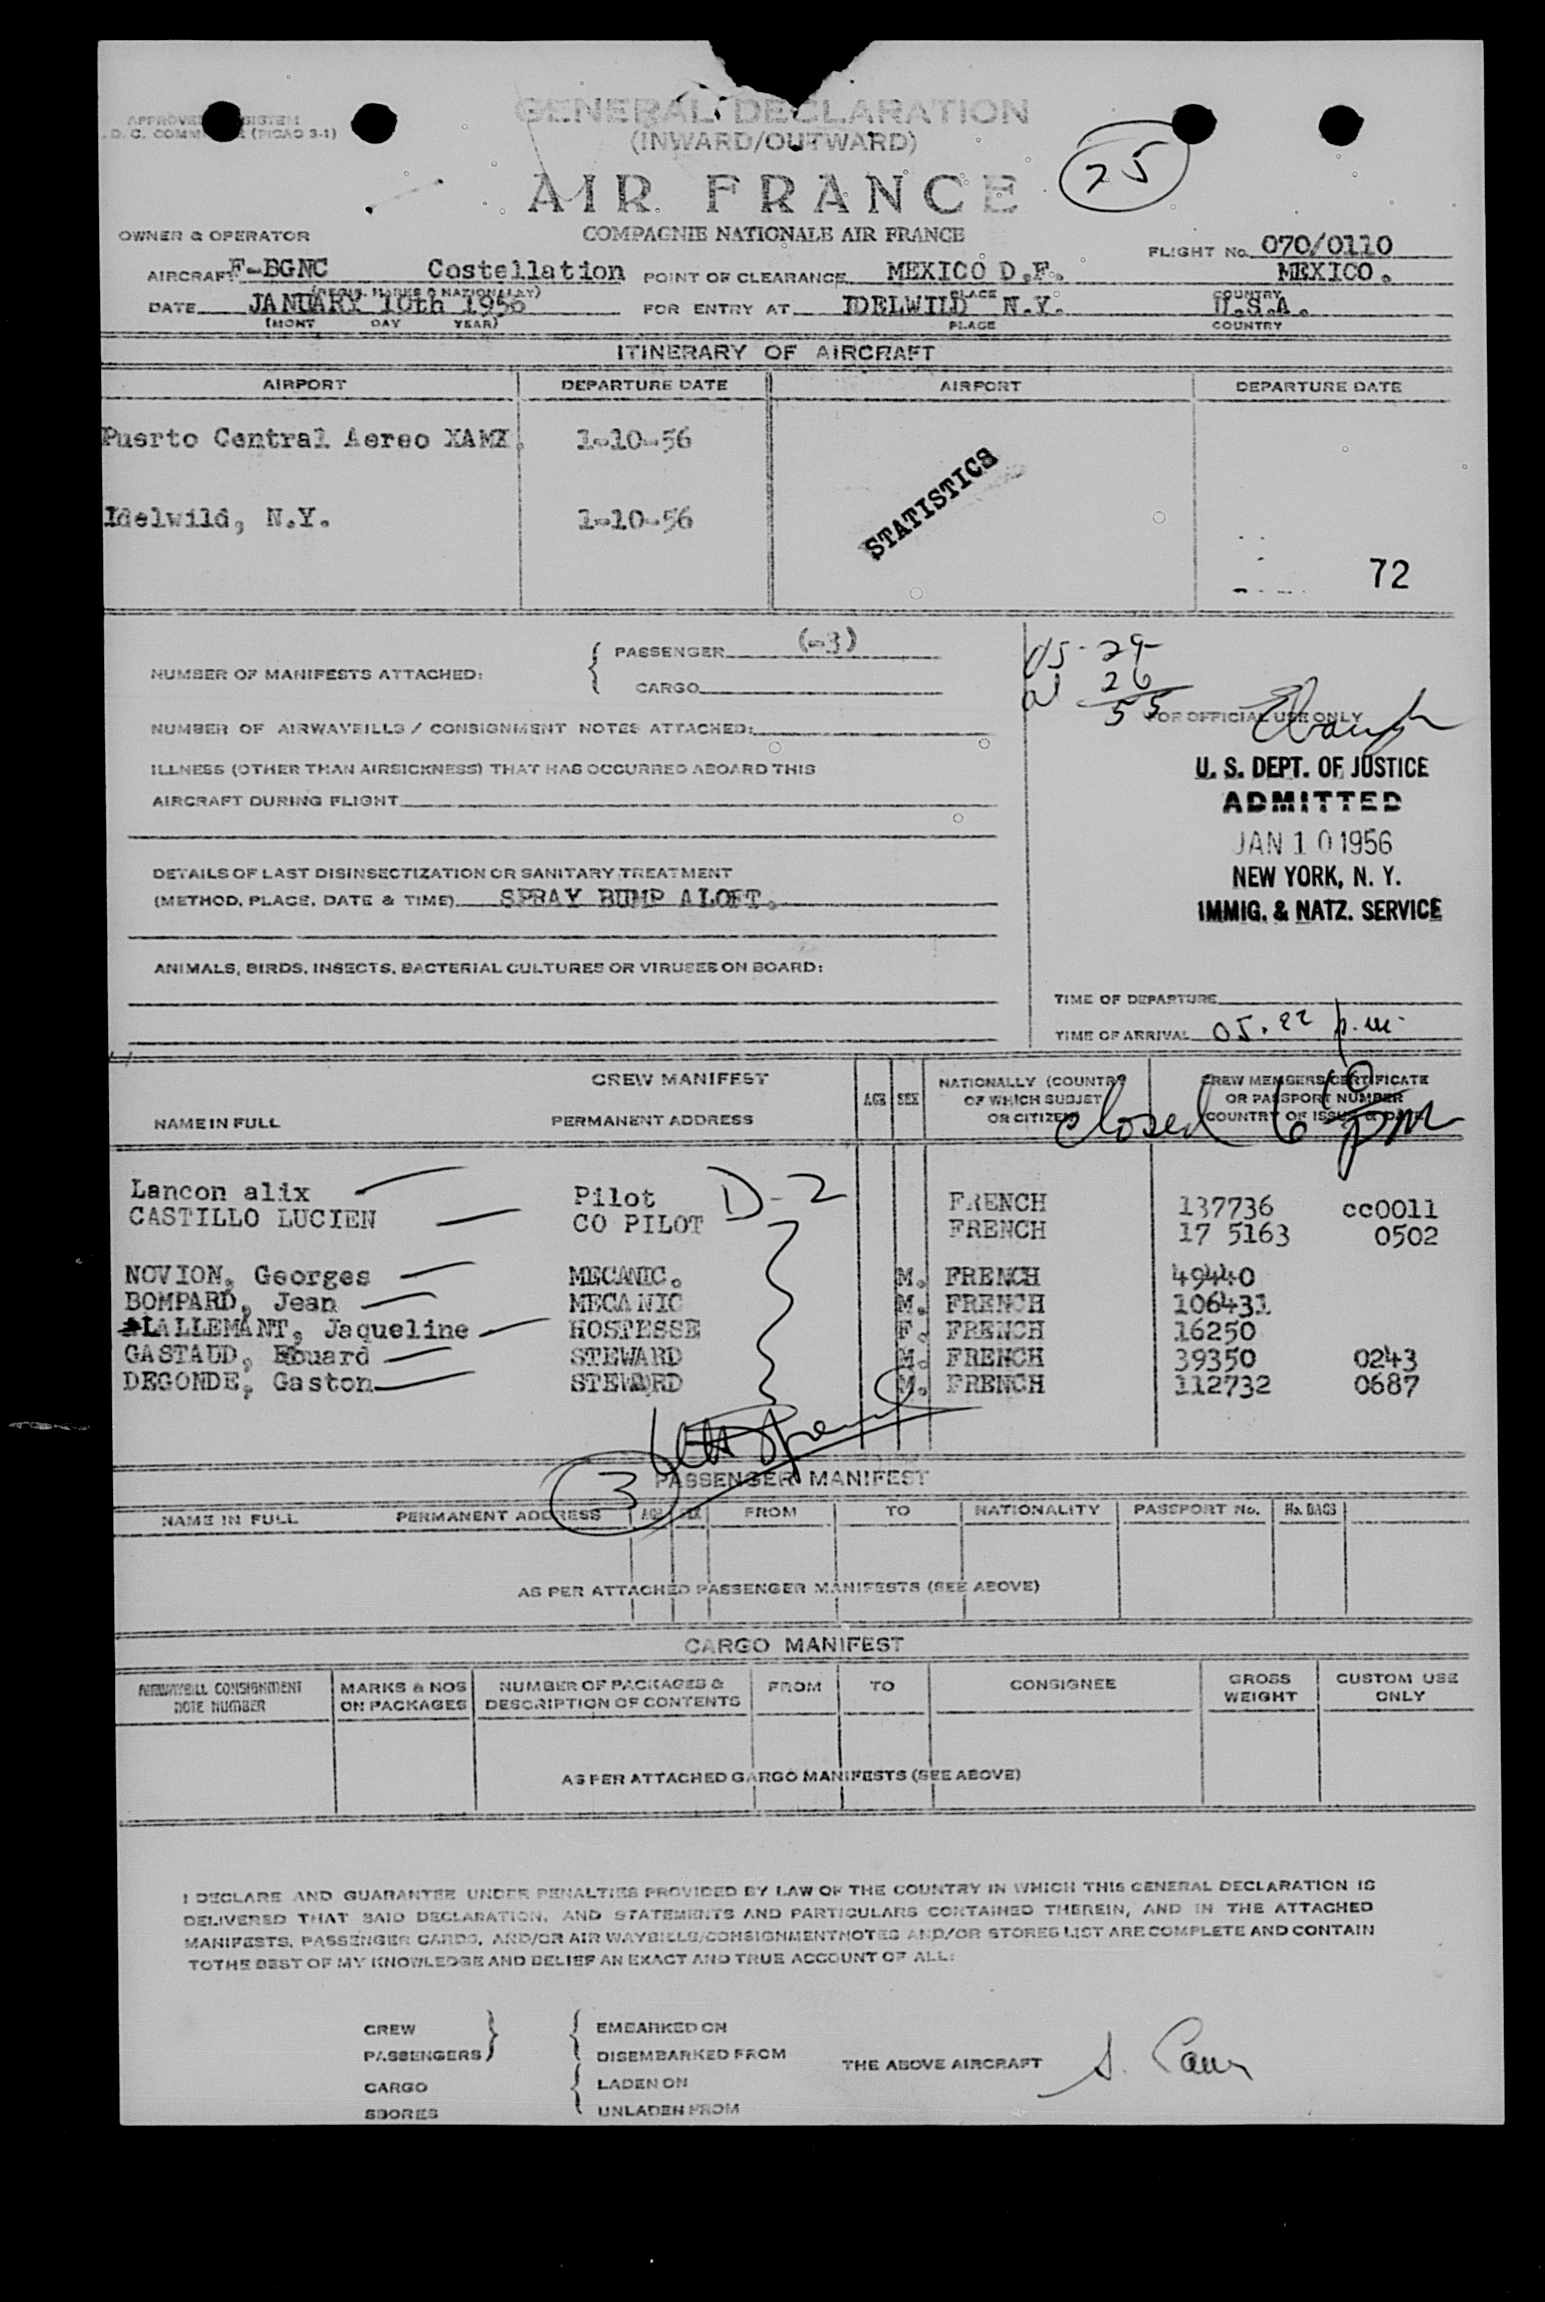 GENERAL DECLARATION
(INWARD/OUTWARD)
25
AIR FRANCE
OWNER & OPERATOR
COMPAGNIE NATIONALE AIR FRANCE
FLIGHT No. 070/0110
AIRCRAFT F-BGNC Costellation POINT OF CLEARANCE MEXICO D.F. MEXICO.
PLACE COUNTRY
DATE JANUARY 10th 1956 FOR ENTRY AT IDELWILD N.Y. U.S.A.
(MONT DAY YEAR) PLACE COUNTRY
ITINERARY OF AIRCRAFT
AIRPORT DEPARTURE DATE AIRPORT DEPARTURE DATE
Puerto Central Aereo XAMX. 1-10-56
STATISTICS
Idelwild, N.Y. 1-10-56
72
PASSENGER (-3)
NUMBER OF MANIFESTS ATTACHED:
CARGO
29
26
55
FOR OFFICIAL USE ONLY
NUMBER OF AIRWAYBILLS / CONSIGNMENT NOTES ATTACHED:
ILLNESS (OTHER THAN AIRSICKNESS) THAT HAS OCCURRED ABOARD THIS
AIRCRAFT DURING FLIGHT
U. S. DEPT. OF JUSTICE
ADMITTED
JAN 10 1956
NEW YORK, N. Y.
IMMIG. & NATZ. SERVICE
DETAILS OF LAST DISINSECTIZATION OR SANITARY TREATMENT
(METHOD, PLACE, DATE & TIME) SPRAY BUMP ALOFT.
ANIMALS, BIRDS, INSECTS, BACTERIAL CULTURES OR VIRUSES ON BOARD:
TIME OF DEPARTURE
TIME OF ARRIVAL 05.22 p.m.
CREW MANIFEST
NAME IN FULL PERMANENT ADDRESS AGE SEX
NATIONALLY (COUNTRY
OF WHICH SUBJET
OR CITIZEN)
CREW MEMBERS CERTIFICATE
OR PASSPORT NUMBER
COUNTRY OF ISSUE & DATE
Closed 6 10 pm
Lancon alix Pilot D-2 FRENCH 137736 cc0011
CASTILLO LUCIEN CO PILOT FRENCH 17 5163 0502
NOVION, Georges MECANIC. M. FRENCH 49440
BOMPARD, Jean MECANIC M. FRENCH 106431
LALLEMANT, Jaqueline HOSTESSE F. FRENCH 16250
GASTAUD, Eouard STEWARD M. FRENCH 39350 0243
DEGONDE, Gaston STEWARD M. FRENCH 112732 0687
3
PASSENGER MANIFEST
NAME IN FULL PERMANENT ADDRESS AGE SEX FROM TO NATIONALITY PASSPORT No. No. BAGS
AS PER ATTACHED PASSENGER MANIFESTS (SEE ABOVE)
CARGO MANIFEST
AIRWAYBILL CONSIGNMENT NOTE NUMBER
MARKS & NOS ON PACKAGES
NUMBER OF PACKAGES & DESCRIPTION OF CONTENTS
FROM TO CONSIGNEE
GROSS WEIGHT
CUSTOM USE ONLY
AS PER ATTACHED GARGO MANIFESTS (SEE ABOVE)
I DECLARE AND GUARANTEE UNDER PENALTIES PROVIDED BY LAW OF THE COUNTRY IN WHICH THIS GENERAL DECLARATION IS
DELIVERED THAT SAID DECLARATION, AND STATEMENTS AND PARTICULARS CONTAINED THEREIN, AND IN THE ATTACHED
MANIFESTS, PASSENGER CARDS, AND/OR AIR WAYBILLS/CONSIGNMENTNOTES AND/OR STORES LIST ARE COMPLETE AND CONTAIN
TOTHE BEST OF MY KNOWLEDGE AND BELIEF AN EXACT AND TRUE ACCOUNT OF ALL:
CREW EMBARKED ON
PASSENGERS DISEMBARKED FROM
THE ABOVE AIRCRAFT
CARGO LADEN ON
SBORES UNLADEN FROM